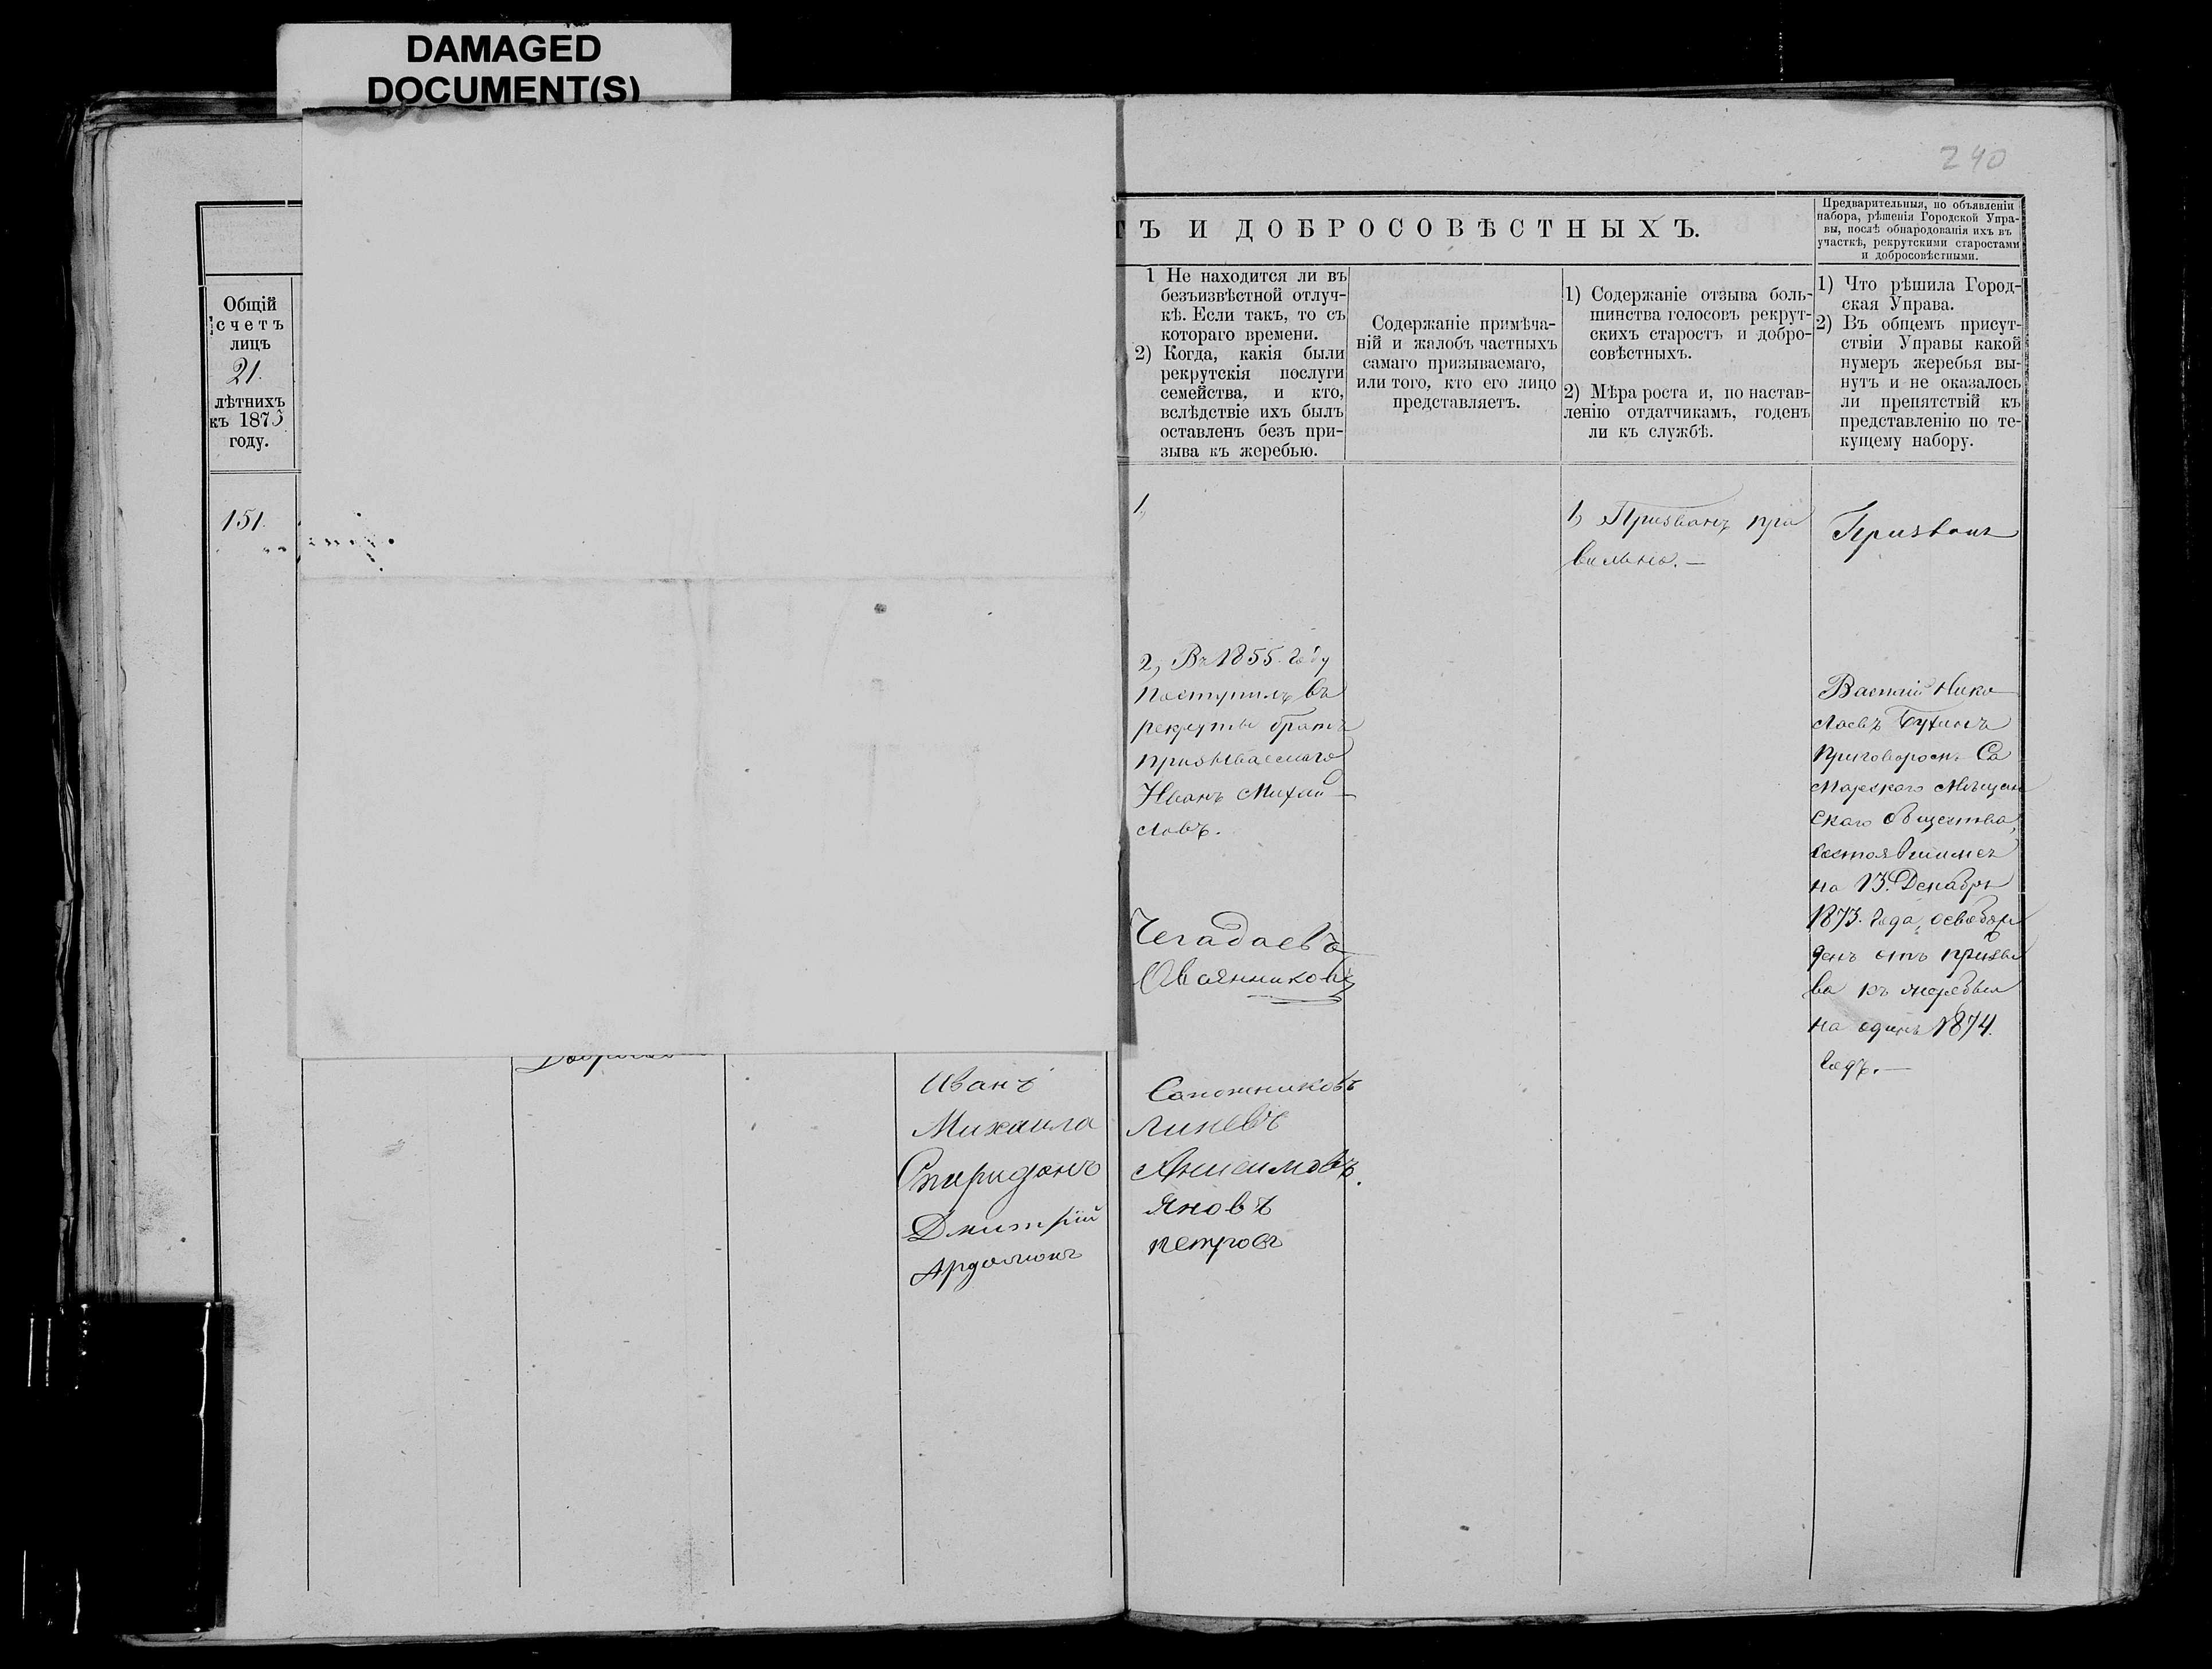 DAMAGED
DOCUMENT(S)
240
Ъ И ДОБРОСОВѢСТНЫХЪ.
Предварительныя, по объявленіи
набора, рѣшенія Городской Упра-
вы, послѣ обнародованія ихъ въ
участкѣ, рекрутскими старостами
и добросовѣстными.
Общій
счетъ
лицъ
21.
лѣтнихъ
къ 1875
году.
1 Не находится ли въ
безъизвѣстной отлуч-
кѣ. Если такъ, то съ
котораго времени.
2) Когда, какія были
рекрутскія послуги
семейства, и кто,
вслѣдствіе ихъ былъ
оставленъ безъ при-
зыва къ жеребью.
Содержаніе примѣча-
ній и жалобъ частныхъ
самаго призываемаго,
или того, кто его лицо
представляетъ.
1) Содержаніе отзыва боль-
шинства голосовъ рекрут-
скихъ старостъ и добро-
совѣстныхъ.
2) Мѣра роста и, по настав-
ленію отдатчикамъ, годенъ
ли къ службѣ.
1) Что рѣшила Город-
ская Управа.
2) Въ общемъ присут-
ствіи Управы какой
нумеръ жеребья вы-
нутъ и не оказалось
ли препятствій къ
представленію по те-
кущему набору.
151.
1,
2, Въ 1855. году
поступилъ въ
рекруты братъ
призываемаго
Иванъ Михай-
ловъ.
Чегадаевъ
Овсянниковъ
Иванъ Сапожниковъ
Михаила Линевъ
Спиридонъ Анисимовъ.
Дмитрій Яновъ
Ардалионъ Петровъ
1, Призванъ пра
вильно.—
Призванъ
Василій Нико
лаевъ
приговоромъ Са
марскаго Мѣщан
скаго общества,
состоявшимся
на 13. Декабря
1873. года, освобож
денъ отъ призы
ва къ жеребью
на одинъ 1874.
годъ.—